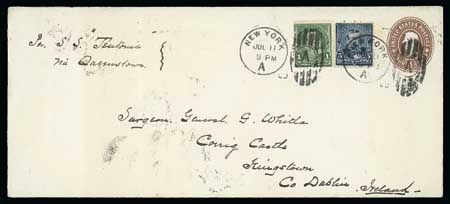 Per S. S. "Teutonic"
via Queenstown
NEW YORK
JUL 11
9 PM
A
UNITED STATES POSTAGE
Surgeon General G. Whitla
Corrig Castle
Kingstown
Co Dublin Ireland